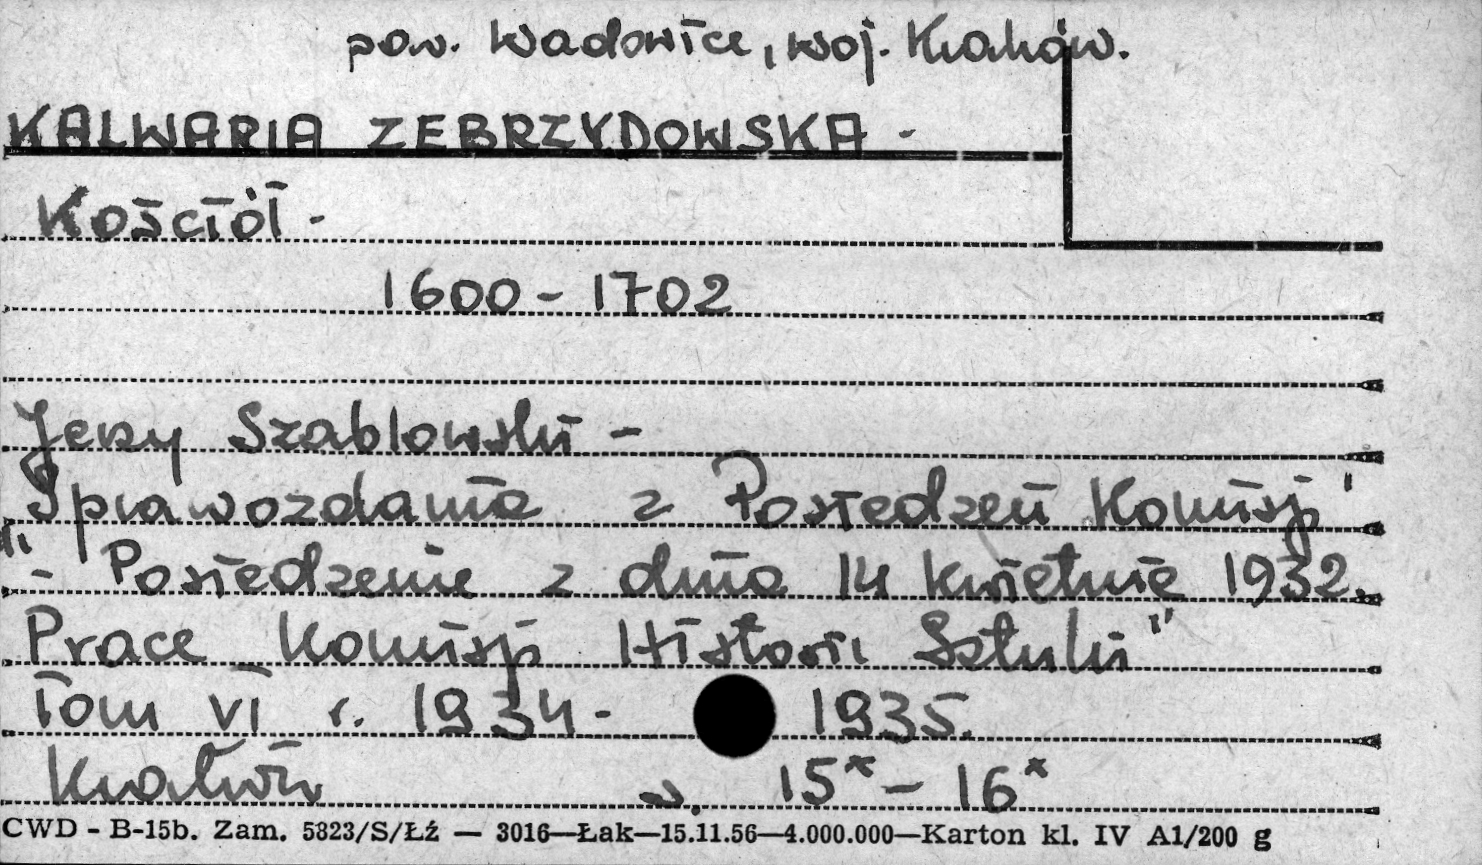 pow. Wadowice, woj. Kraków.
KALWARIA ZEBRZYDOWSKA -
Kościół -
1600 - 1702
Jerzy Szablowski -
"Sprawozdania z Posiedzeń Komisji"
- Posiedzenie z dnia 14 kwietnia 1932.
"Prace Komisji Historii Sztuki"
Tom VI r. 1934 - 1935.
Kraków s. 15* - 16*
CWD - B-15b. Zam. 5823/S/Łź — 3016—Łak—15.11.56—4.000.000—Karton kl. IV A1/200 g